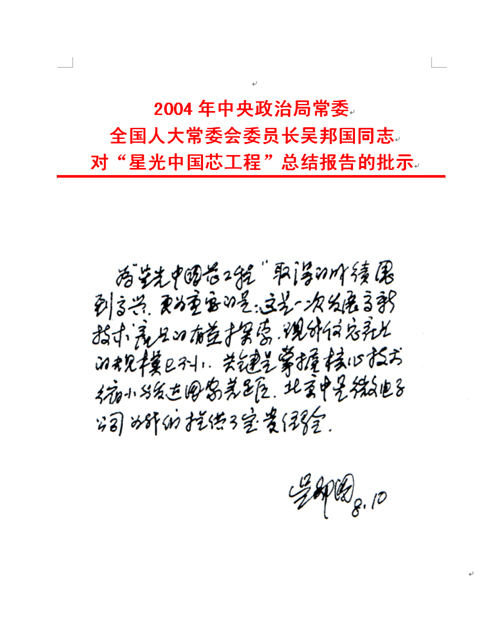 2004 年中央政治局常委
全国人大常委会委员长吴邦国同志
对“星光中国芯工程”总结报告的批示
为“星光中国芯工程”取得的成绩感
到高兴，更为重要的是：这是一次发展高新
技术产品的有益探索。现我们信息产品
的规模已不小，关键是掌握核心技术
缩小与发达国家差距。北京中星微电子
公司为我们提供了宝贵经验。
吴邦国
8.10